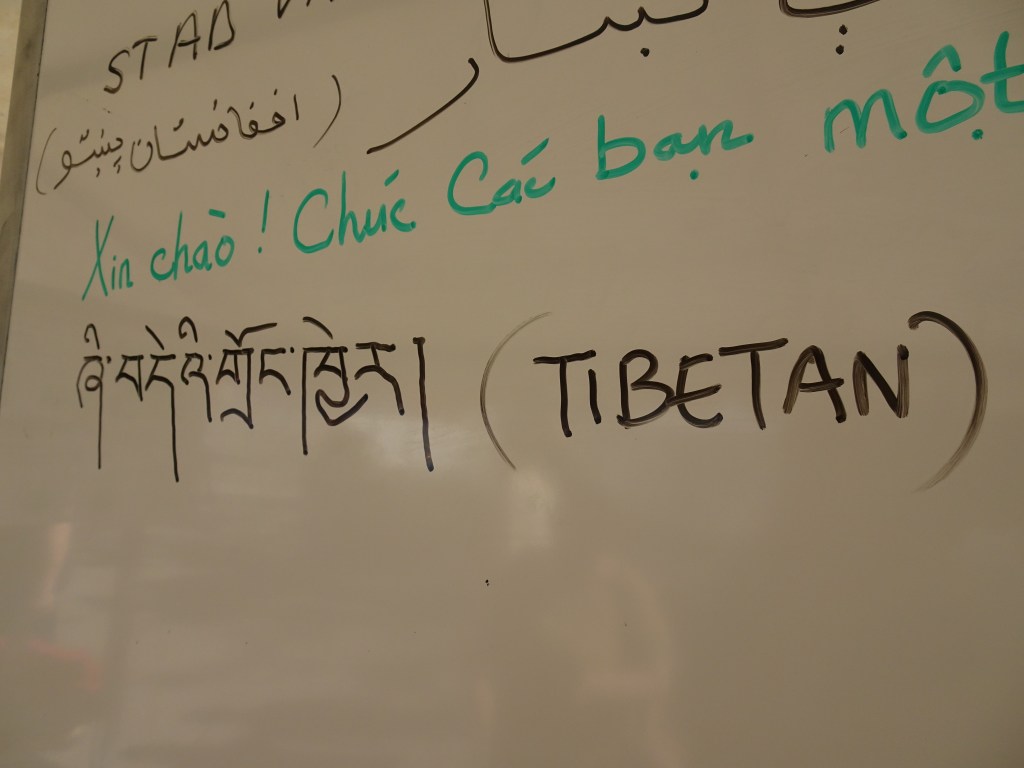 STAB
(افغانستان پښتو)
Xin chào! Chúc Các bạn một
ཞི་བདེའི་གྲོང་ཁྱེར། (TIBETAN)